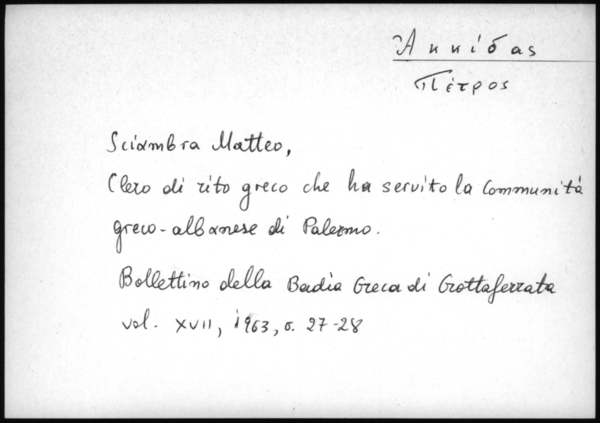 Ἀκκίδας
Πέτρος
Sciambra Matteo,
Clero di rito greco che ha servito la Communità
greco-albanese di Palermo.
Bollettino della Badia Greca di Grottaferrata
vol. XVII, 1963, σ. 27-28